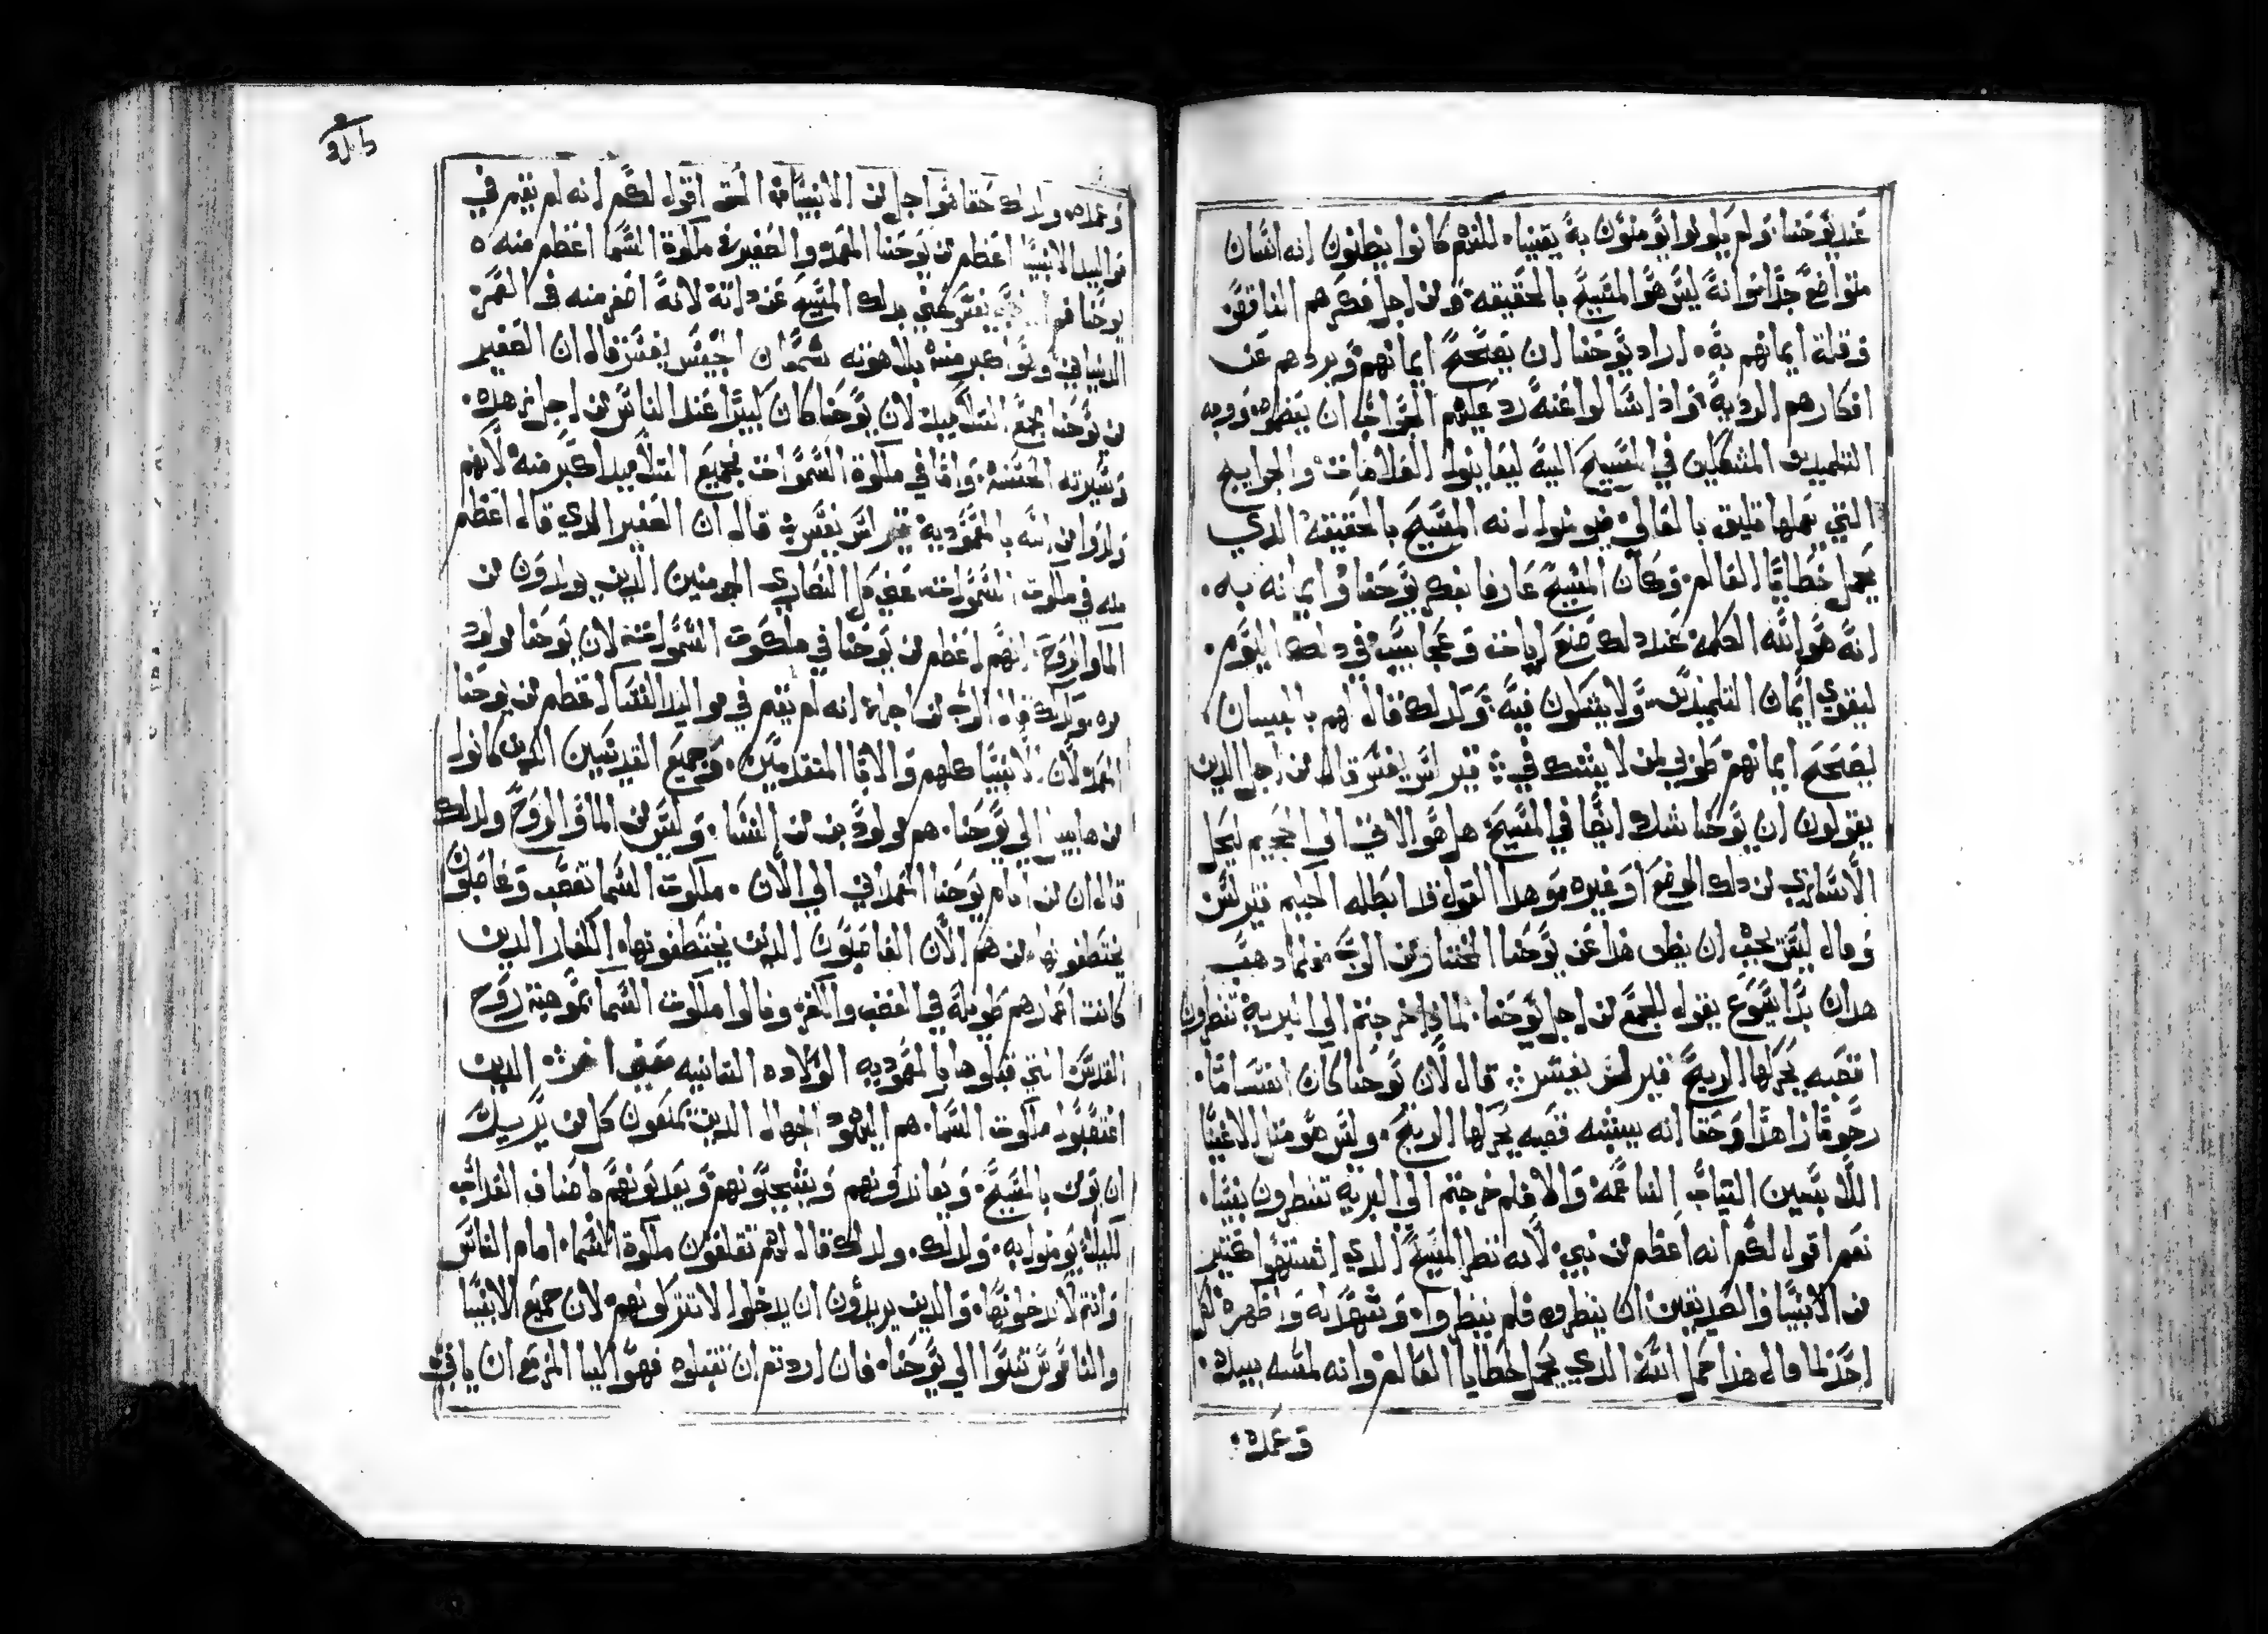 عند يوحنا. ولم يكونوا يومنون به يقينا. لكنهم كانوا يظنون انه انسان
متواضع جدا وانه ليس هو المسيح بالحقيقه. ومن اجل فكرهم الناقص
وقلة ايمانهم به. اراد يوحنا ان يصحح ايمانهم ويردهم عن
افكارهم الرديه. واذا سالوا عنه رد عليهم الجواب ان
التلميدين المشكلين في المسيح اليه ليعاينوا العلامات والجرايح
التي يعملها تليق بالغالي فيومنوا انه المسيح بالحقيقه الدي
يحمل خطايا العالم. وكان المسيح عارفا بفكر يوحنا وايمانه به.
انه هو الله الكلمة عند دلك صنع ايات وعجايب في دلك اليوم.
ليقوي ايمان التلميدين ولا يشكون فيه. ولدلك قال لهم
ليصحح ايمانهم طوبي لمن لا يشك في. قيرلس يفسر قال من اجل الدين
يقولون ان يوحنا شك ايضا في المسيح هل هو الاتي الي الجحيم ليحل
الاساري من دلك الموضع او غيره وهدا القول قد ابطله الحكيم قيرلس
وقال ليس يجب ان يظن هدا عن يوحنا المختار من الرب ولما دهب
هدان بدا يسوع يقول للجمع من اجل يوحنا. لماذا خرجتم الي البرية تنظرون
اقصبه يحركها الريح قيرلس يفسر. قال لان يوحنا كان انسانا
رحوما زاهدا وحقا انه يشبه قصبه يحركها الريح. وليس هو مثل الاغنيا
اللابسين الثياب الناعمه والا فلم خرجتم الي البريه تنظرون نبيا.
نعم اقول لكم انه اعظم من نبي. لانه نظر المسيح الدي اشتهوا كثير
من الانبيا والصديقين ان ينظروه فلم ينظروا. وشهد له واظهره لكل
احد لما قال هدا حمل الله الدي يحمل خطايا العالم وانه لمسه بيده.
وعمده.
وعمده ولدلك حقا اقول لكم انه لم يقم في
مواليد النسا اعظم من يوحنا المعمد والصغير في ملكوة السما اعظم منه
يوحنا فم الدهب يفسر يعني بدلك المسيح عن داته لانه اصغر منه في العمر
الدنياني وهو اكبر منه بلاهوته سمعان يفسر قال ان الصغير
من يوحنا جميع التلاميد لان يوحنا كان كبيرا عند الناس من اجل زهده.
وسيرته الحسنه. واما في ملكوة السموات فجميع التلاميد اكبر منه لانهم
ولدوا من الله بالمعمودية قيرلس يفسر قال ان الصغير الدي قال اعظم
منه في ملكوت السموات عني كل النصاري المومنين الدين يولدون من
الما والروح. انهم اعظم من يوحنا في ملكوت السموات لان يوحنا مولود
قال الرب من اجله انه لم يقم في مواليد النسا اعظم من يوحنا
المعمد لان الانبيا كلهم والابا المتقدمين. وجميع القديسين الدين كانوا
من هابيل الي يوحنا. هم مولودين من النسا. وليس من الما والروح ولدلك
قال ان من ايام يوحنا المعمداني الي الان. ملكوت السما تغصب وغاصبون
يختطفونها. من هم الان الغاصبون الدين يختطفونها. الكفار الدين
كانت اعمارهم طويلة في الغضب والكفر. وقالوا ملكوت السما بموهبة روح
القدس التي قبلوها بالمعموديه الولاده التانيه الدين
اغتصبوا ملكوت السما. هم اليهود الجهال الدين يمنعون كل من يريد
ان يومن بالمسيح. ويعاندونهم ويسجنونهم ويعدبونهم باصناف العداب
لكيلا يومنوا به. ولدلك. ولدلك قال لهم تغلقون ملكوة السما. امام الناس
وانتم لا تدخلونها. والدين يريدون ان يدخلوا لا تتركونهم. لان جميع الانبيا
والناموس تنبوا الي يوحنا. فان اردتم ان تقبلوه فهو ايليا المزمع ان ياتي